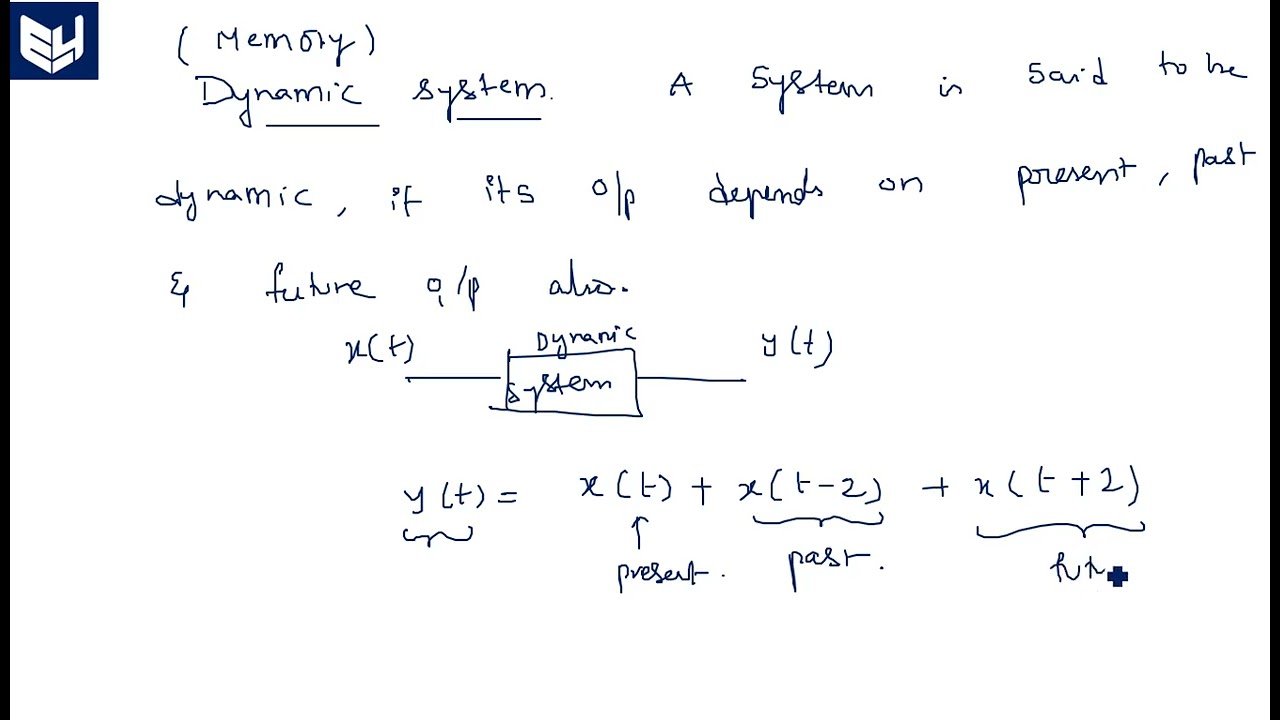 (Memory)
Dynamic system. A System is said to be
dynamic, if its o/p depends on present, past
& future i/p also.
x(t) Dynamic y(t)
system
y(t) = x(t) + x(t-2) + x(t+2)
present. past. fut